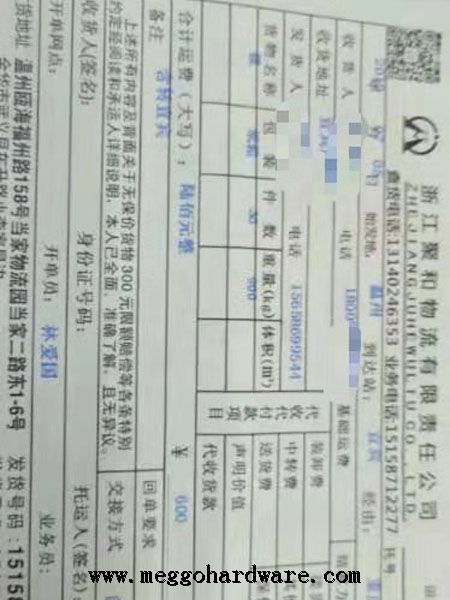 浙江聚和物流有限责任公司
ZHEJIANGJUHEWULIUCO.,LTD.
查货电话:13140246353 业务电话:15158712277 托号
始发地 温州 到达站: 宜宾 经由:
收货人 电话
收货地址
发货人 电话 15658699544
货物名称 包装 件数 重量(kg) 体积(m³)
锁 纸箱 30 900
代收代付款项
基础运费
装卸费
中转费
送货费
声明价值
代收货款
合计运费(大写): 陆佰元整 ¥ 600
备注 含转宜宾
回单要求
交接方式
上述所有内容及背面关于无保价货物300元限额赔偿等各条特别
约定经阅读和承运人详细说明,本人已全面、准确了解,且无异议。
收货人(签名): 身份证号码: 托运人(签名)
开单网点: 开单员: 林爱国 业务员:
货地址 温州瓯海福州路158号当家物流园当家二路东1-6号 发货号码: 15158
www.meggohardware.com